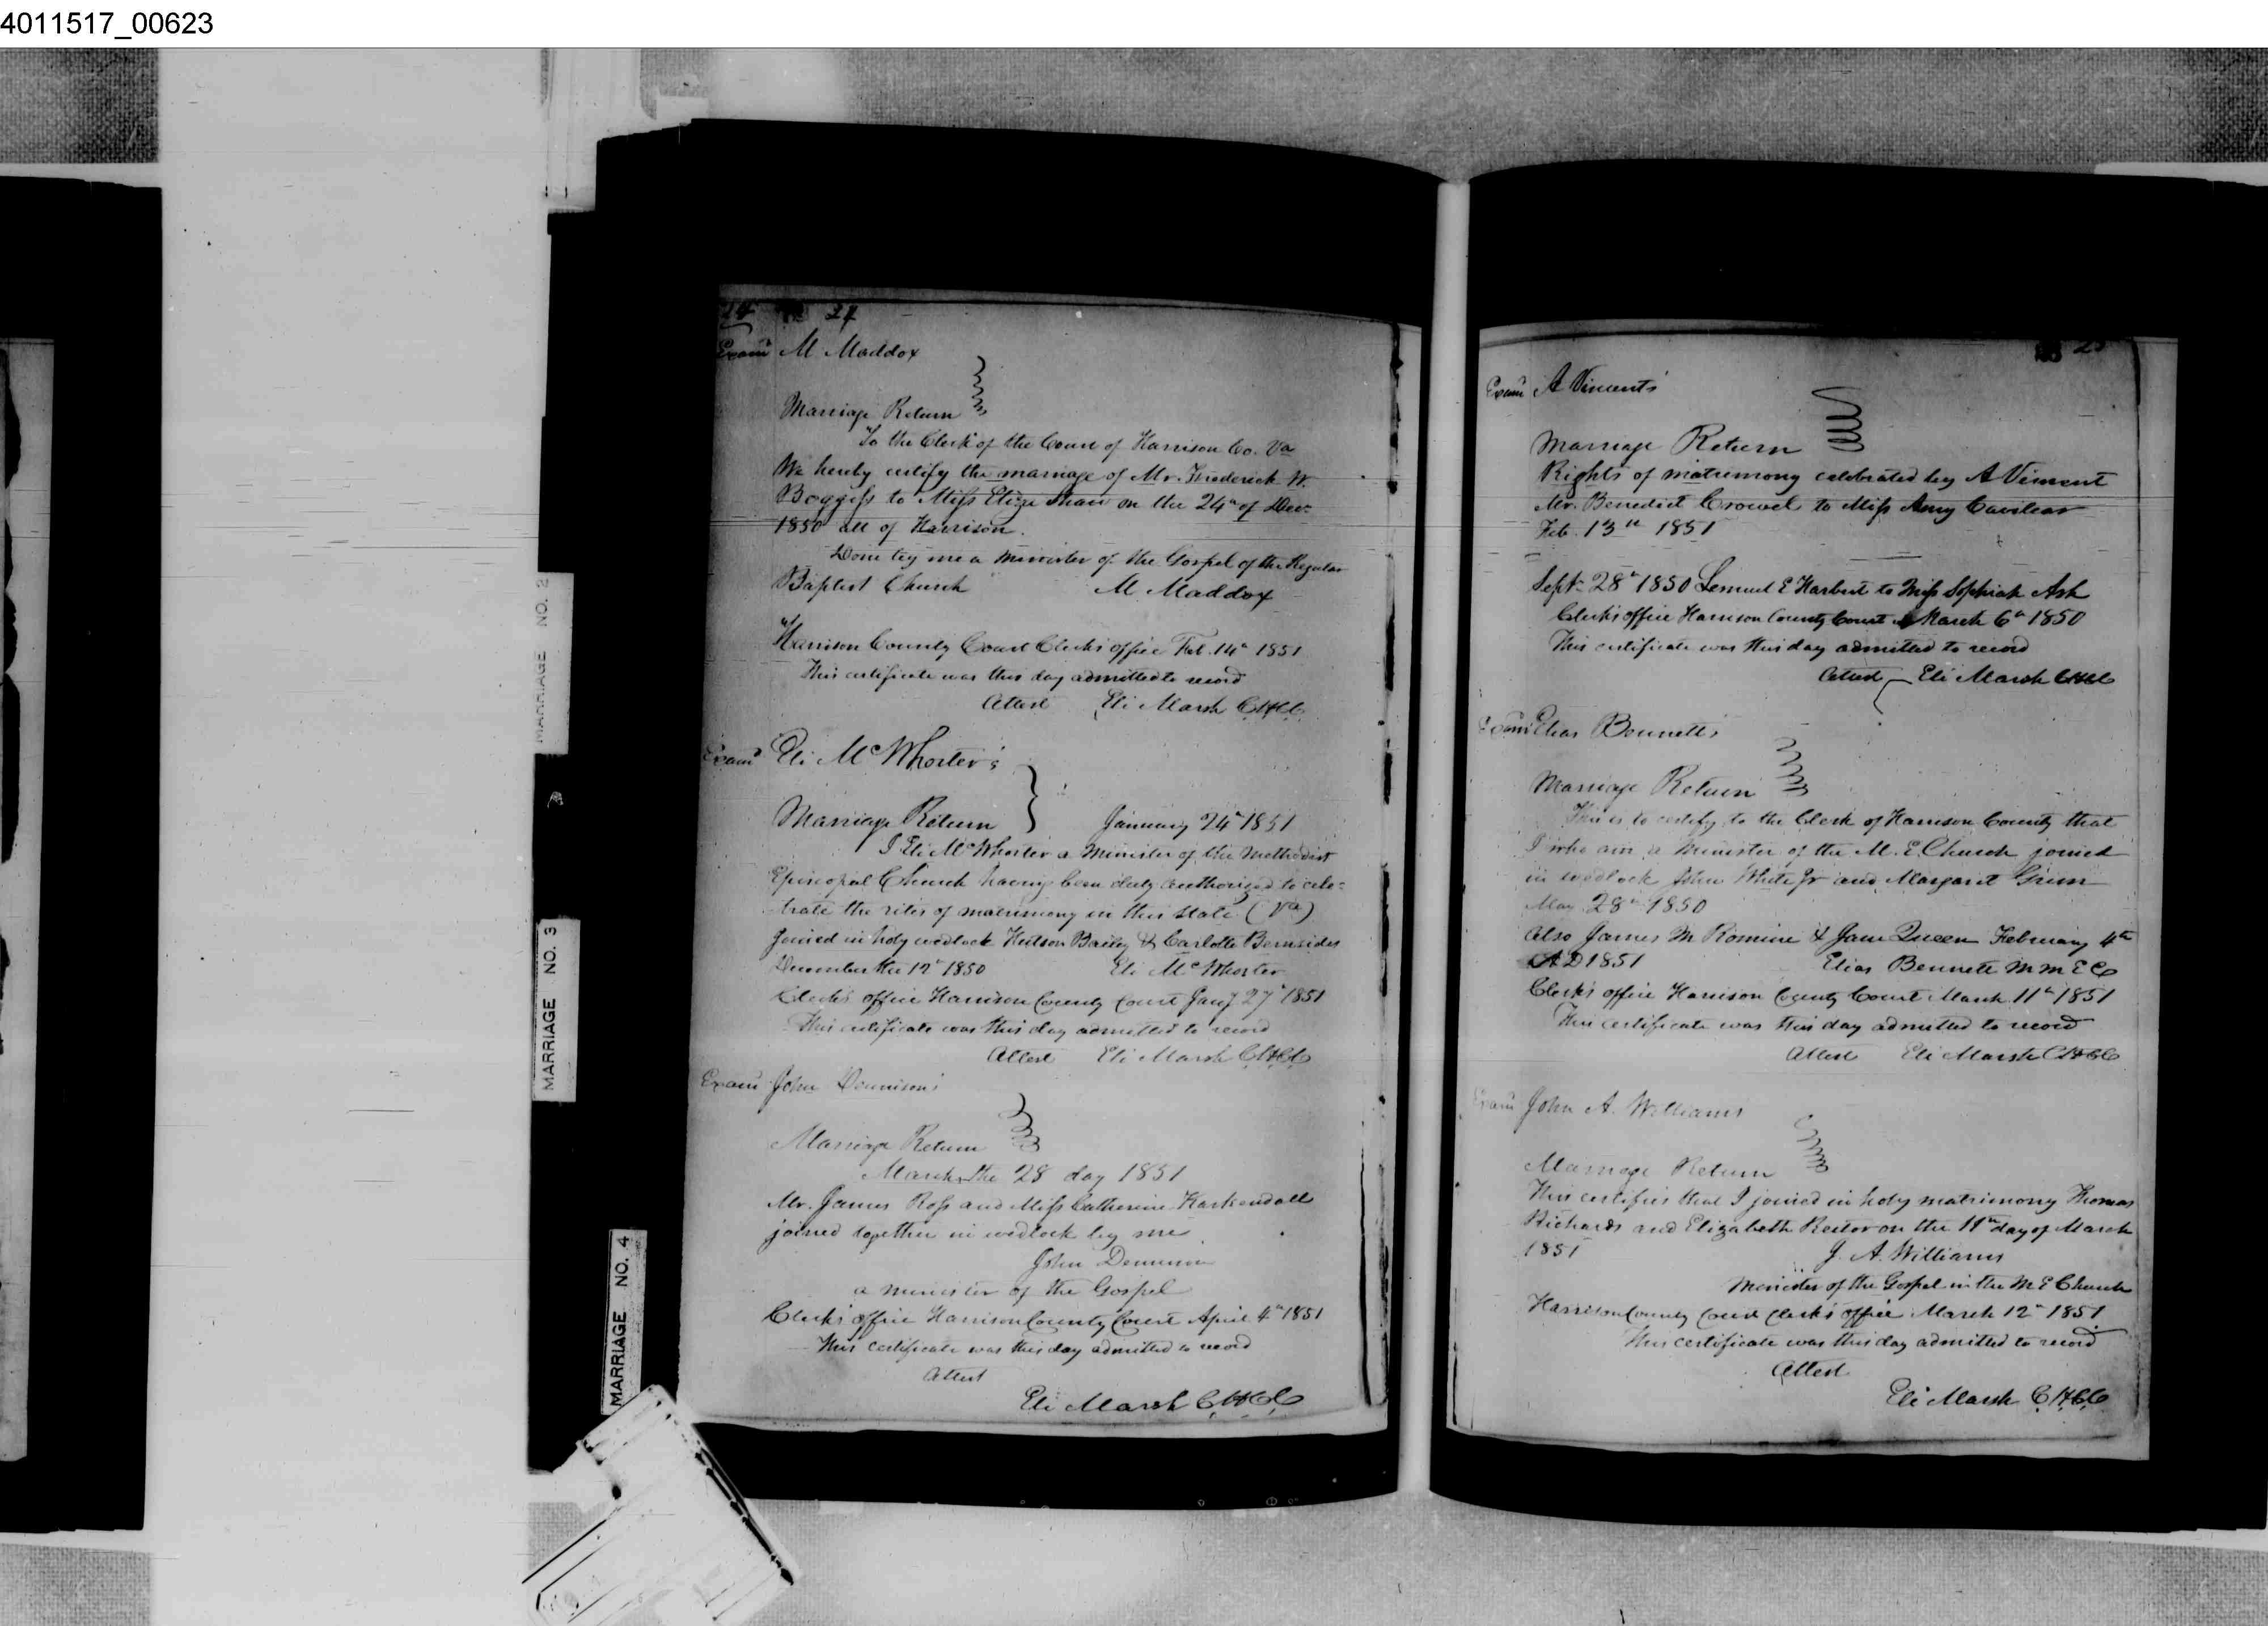 4011517_00623
MARRIAGE NO. 2
MARRIAGE NO. 3
MARRIAGE NO. 4
24 24
Exam'd M. Maddox
Marriage Return
To the Clerk of the Court of Harrison Co. Va
We hereby certify the marriage of Mr. Frederick W.
Boggess to Miss Eliza Shaw on the 24th of Dec:
1850 all of Harrison.
Done by me a minister of the Gospel of the Regular
Baptist Church M. Maddox
Harrison County Court Clerk's office Feb. 14th 1851
This certificate was this day admitted to record
Attest Eli Marsh C.H.C.C.
Exam'd Eli McWhorter's
Marriage Return January 24th 1851
I Eli McWhorter a Minister of the Methodist
Episcopal Church having been duly authorized to cele=
brate the rites of matrimony in this state (Va)
joined in holy wedlock Hutson Bailey & Carlotte Bernsides
December the 12th 1850 Eli McWhorter
Clerk's office Harrison County Court Jany 27th 1851
This certificate was this day admitted to record
Attest Eli Marsh C.H.C.C.
Exam'd John Dennison's
Marriage Return
March the 28 day 1851
Mr. James Ross and Miss Catherine Kuykendall
joined together in wedlock by me
John Dennison
a minister of the Gospel
Clerk's office Harrison County Court April 4th 1851
This certificate was this day admitted to record
Attest
Eli Marsh C.H.C.C.
25
Exam'd A Vincents'
Marriage Return
Rights of matrimony celebrated by A Vincent
Mr. Benedict Crowel to Miss Amy Cavilear
Feb. 13th 1851
Sept. 28th 1850 Lemuel E Harbert to Miss Sophiah Ash
Clerk's office Harrison County Court March 6th 1850
This certificate was this day admitted to record
Attest Eli Marsh CHCC
Exam'd Elias Bennett's
Marriage Return
This is to certify to the Clerk of Harrison County that
I who am a minister of the M. E. Church joined
in wedlock John White Jr and Margaret Grim
May 28th 1850
Also James M Romine & Jane Queen February 4th
AD 1851 Elias Bennett M M E C
Clerk's office Harrison County Court March 11th 1851
This certificate was this day admitted to record
Attest Eli Marsh CHCC
Exam'd John A. Williams
Marriage Return
This certifies that I joined in holy matrimony Thomas
Richards and Elizabeth Rector on the 11th day of March
1851 J. A. Williams
Minister of the Gospel in the M E Church
Harrison County Court Clerk's office March 12th 1851
This certificate was this day admitted to record
Attest
Eli Marsh C.H.C.C.